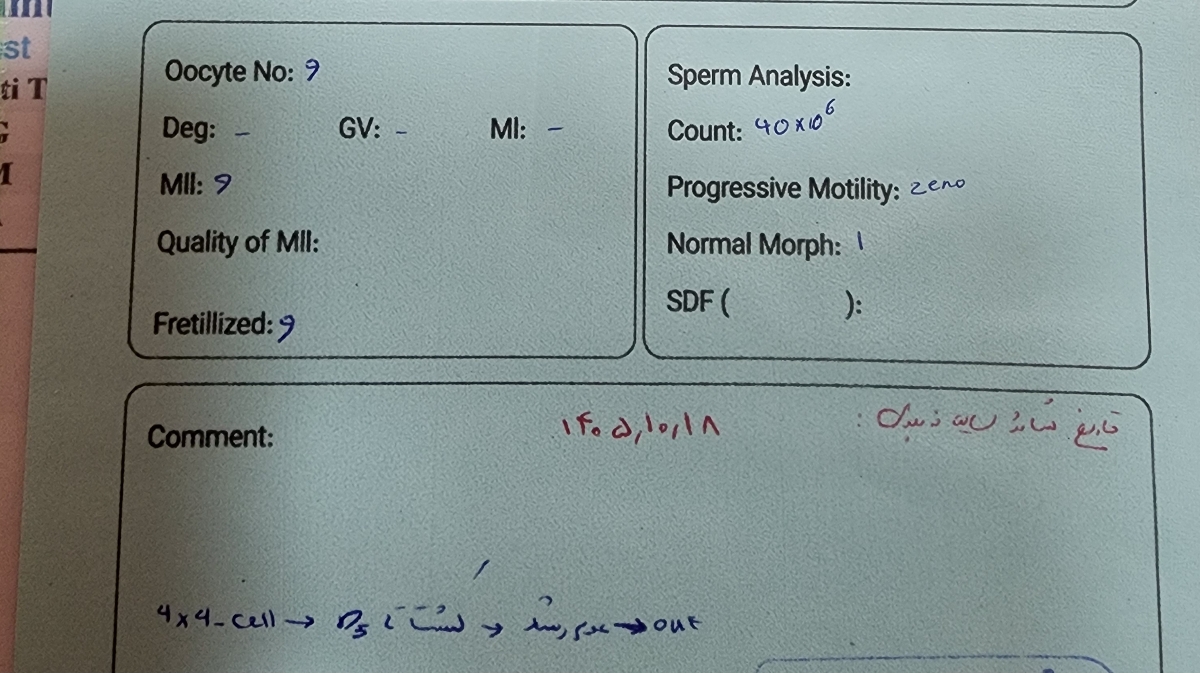 st
ti T
Oocyte No: 9
Deg: - GV: - MI: -
MII: 9
Quality of MII:
Fretillized: 9
Sperm Analysis:
Count: 40×10⁶
Progressive Motility: zero
Normal Morph: 1
SDF ( ):
Comment:
۱۴۰۵,۱۰,۱۸
تاریخ
4x4-cell → D5 تا کشت → عدم رشد → out